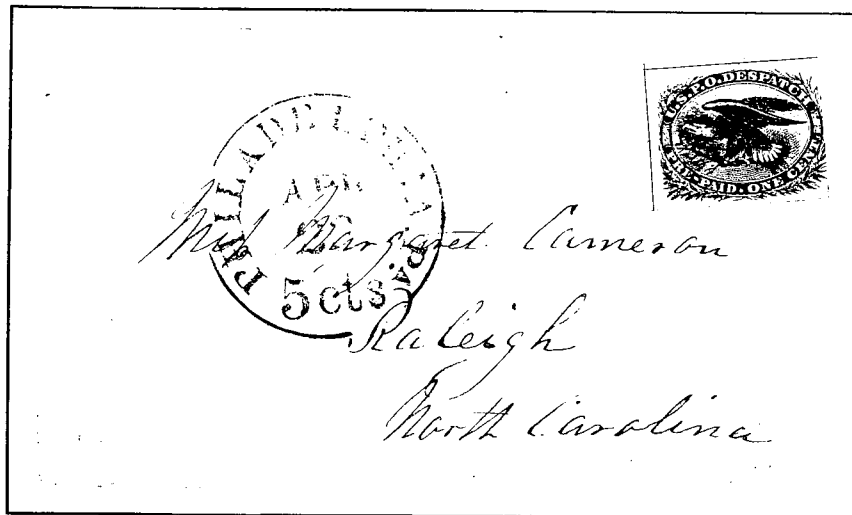 U.S.P.O. DESPATCH
PRE-PAID. ONE CENT
PHILADELPHIA Pa.
APR
5 cts
Miss Margaret Cameron
Raleigh
North Carolina